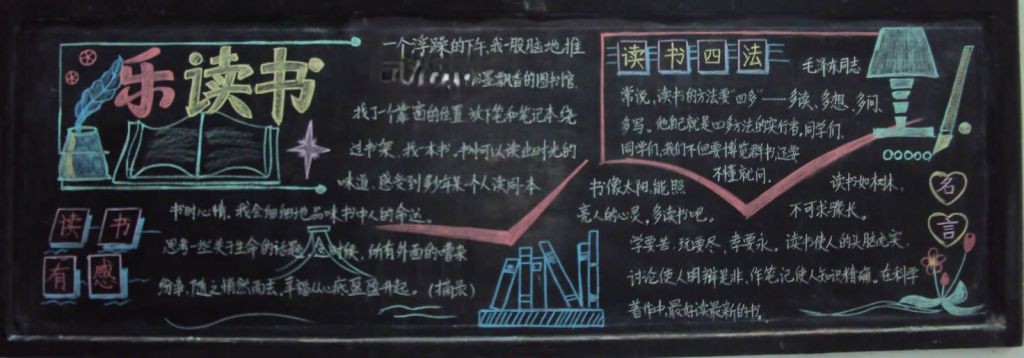 乐读书
一个浮躁的下午,我一股脑地推
墨飘香的图书馆,
找了个靠窗的位置,放下笔和笔记本,绕
过书架,找一本书,书可以读出时光的
味道,感受到多少年某个人读同一本
读书有感
书时心情,我会细细地品味书中人的命运,
思考一些关于生命的话题,这时候,所有外面的喧杂
纷争,随之悄然而去,幸福从心底冉冉升起。(摘录)
读书四法
毛泽东同志
常说,读书的方法要“四多”——多读、多想、多问、
多写。他自己就是四多方法的实行者,同学们,
同学们,我们不但要博览群书,还要
不懂就问。
书像太阳,能照
亮人的心灵,多读书吧。
名言
读书如树木,
不可求骤长。
学要苦,玩要尽,幸要永。读书使人的头脑充实,
讨论使人明辩是非,作笔记使人知识精确。在科学
著作中,最好读最新的书。